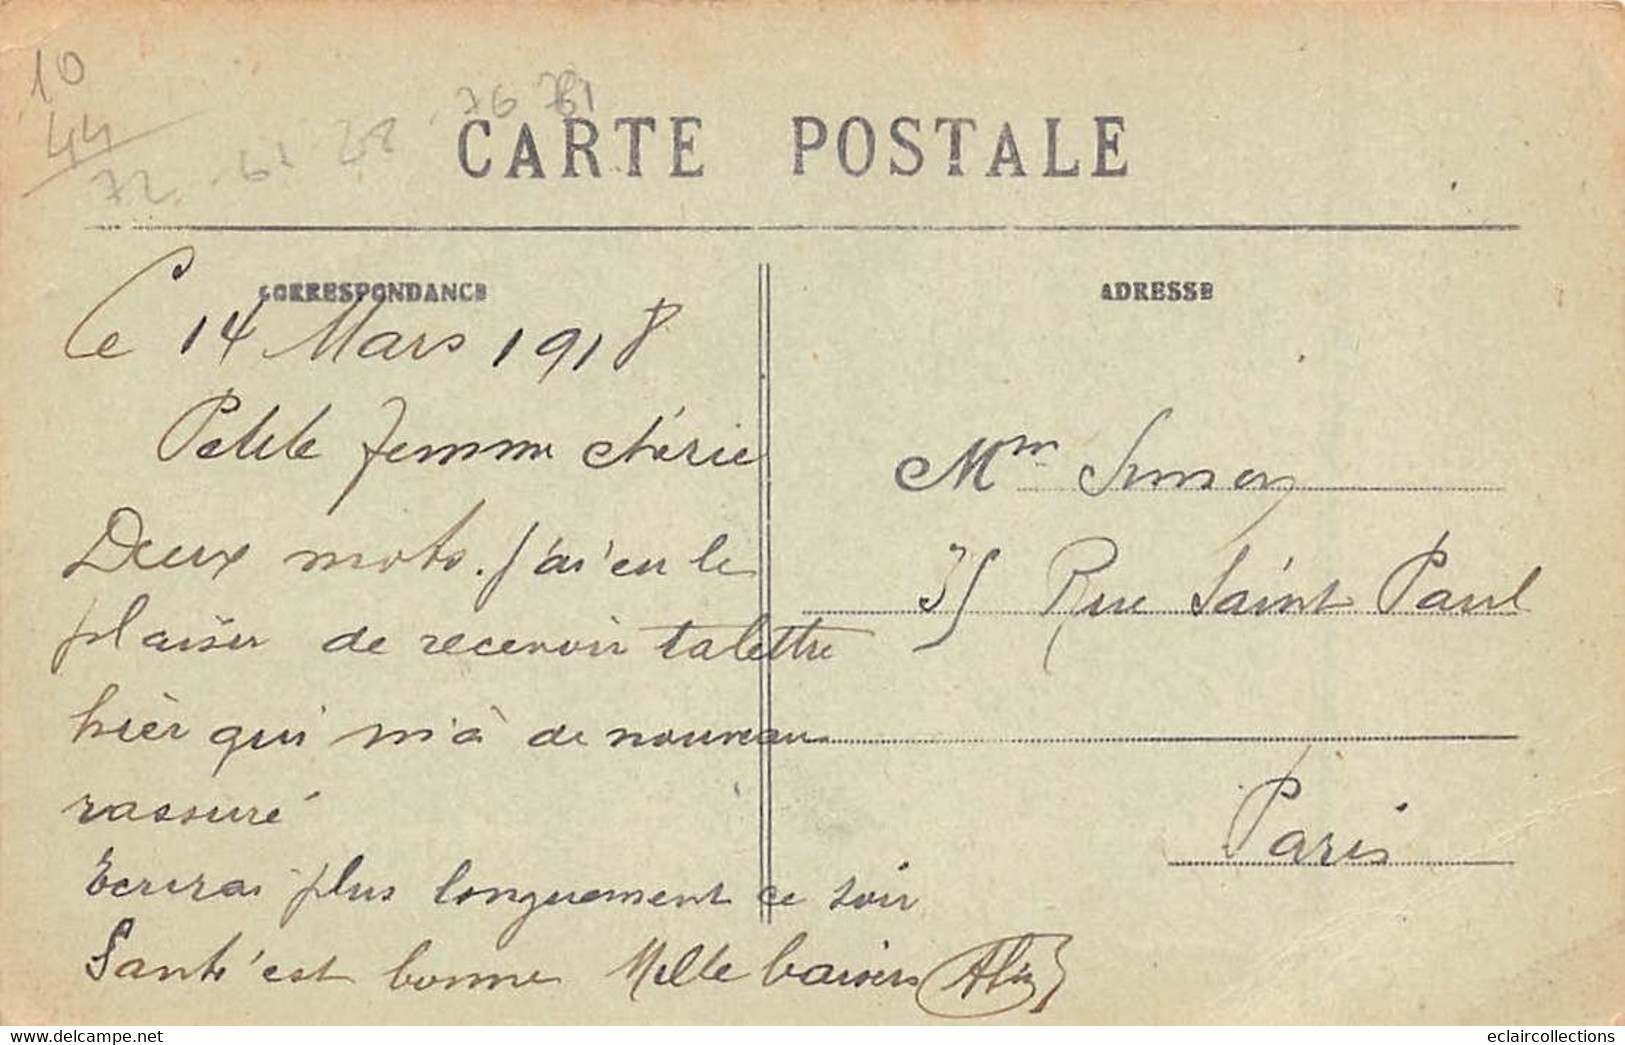 10
44
72 - 61 28 - 76
CARTE POSTALE
CORRESPONDANCE
ADRESSE
Ce 14 Mars 1918
Petite femme chérie
Deux mots. J'ai eu le
plaisir de recevoir ta lettre
hièr qui m'à de nouveau
rassuré
Ecrirai plus longuement ce soir
Santé est bonne Mille baisers
Mme
35 Rue Saint Paul
Paris
eclaircollections
www.delcampe.net